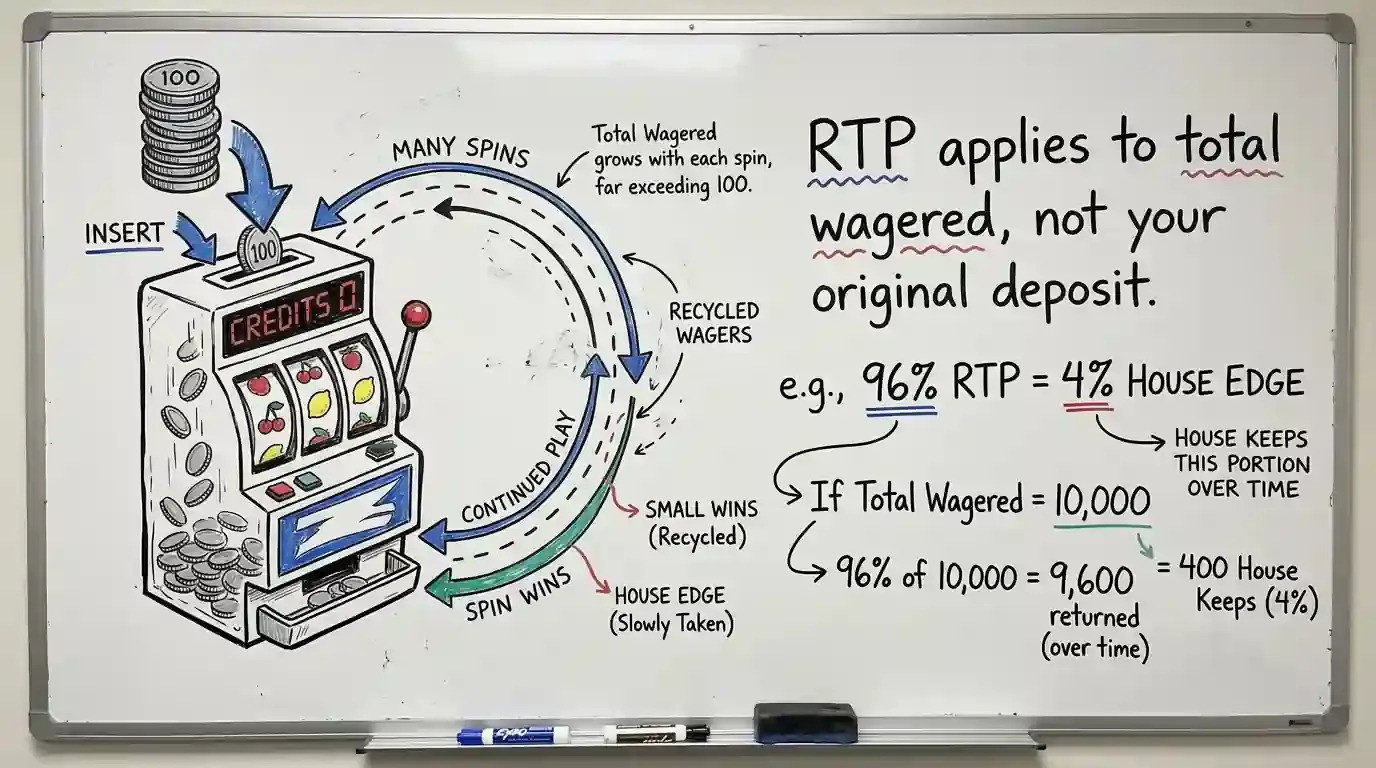 100
INSERT
100
CREDITS 0
MANY SPINS
Total Wagered
grows with each spin,
far exceeding 100.
RECYCLED
WAGERS
CONTINUED PLAY
SMALL WINS
(Recycled)
SPIN WINS
HOUSE EDGE
(Slowly Taken)
RTP applies to total
wagered, not your
original deposit.
e.g., 96% RTP = 4% HOUSE EDGE
HOUSE KEEPS
THIS PORTION
OVER TIME
If Total Wagered = 10,000
96% of 10,000 = 9,600
returned
(over time)
= 400 House
Keeps (4%)